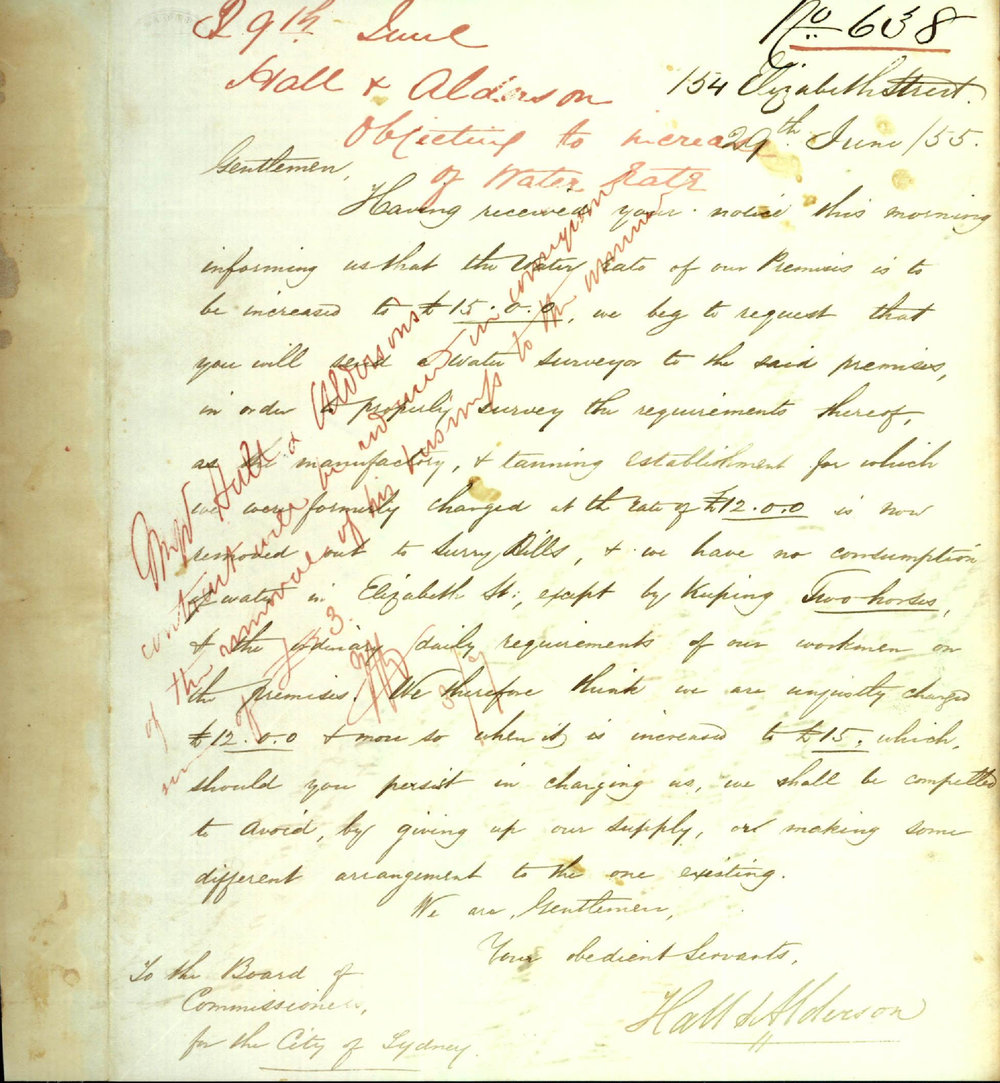 29th June
No 638
Hall & Alderson
154 Elizabeth Street.
Objecting to increase
of Water Rate
29th June /55.
Gentlemen,
Having received your notice this morning
informing us that the Water rate of our Premises is to
be increased to £15.0.0, we beg to request that
you will send a Water Surveyor to the said premises,
in order to properly survey the requirements thereof,
as the manufactory, & tanning establishment for which
we were formerly charged at the rate of £12.0.0 is now
removed out to Surry Hills, & we have no consumption
of water in Elizabeth St:, except by Keeping Two horses,
& the ordinary daily requirements of our workmen on
the premises. We therefore think we are unjustly charged
£12.0.0 & more so when it is increased to £15. which,
should you persist in charging us, we shall be compelled
to avoid, by giving up our supply, or making some
different arrangement to the one existing.
We are, Gentlemen,
Your obedient Servants,
Hall & Alderson
To the Board of
Commissioners,
for the City of Sydney.
Messrs Hall & Aldersons
contract will be in
of the removal of his business to the
of £3.